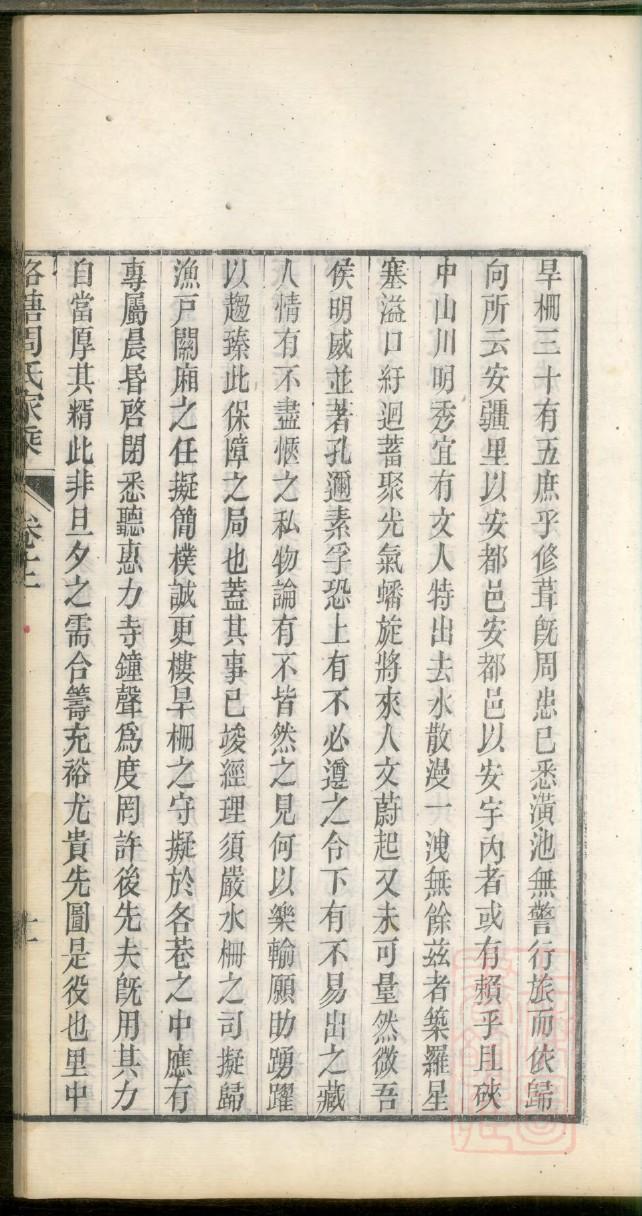 旱柵三十有五庶乎修葺旣周患已悉潢池無警行旅而依歸
向所云安疆里以安都邑安都邑以安宇內者或有賴乎且硤
中山川明秀宜有文人特出去水散漫一洩無餘茲者築羅星
塞溢口紆迴蓄聚光氣蟠旋將來人文蔚起又未可量然微吾
侯明威並著孔邇素孚恐上有不必遵之令下有不易出之藏
人情有不盡愜之私物論有不皆然之見何以樂輸願助踴躍
以趨臻此保障之局也蓋其事已竣經理須嚴水柵之司擬歸
漁戶關廂之任擬簡樸誠更樓旱柵之守擬於各巷之中應有
專屬晨昏啓閉悉聽惠力寺鐘聲爲度罔許後先夫旣用其力
自當厚其糈此非旦夕之需合籌充裕尤貴先圖是役也里中
洛塘周氏家乘 卷十二